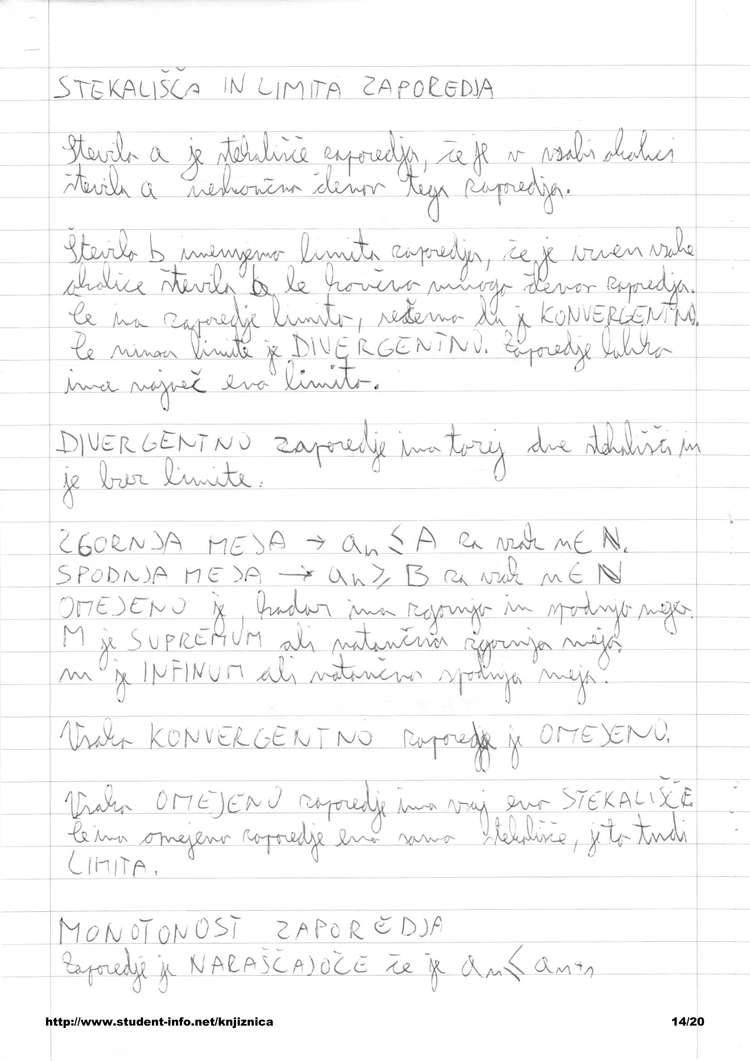 STEKALIŠČA IN LIMITA ZAPOREDJA
Število a je stekališče zaporedja, če je v vsaki okolici
števila a neskončno členov tega zaporedja.
Število b imenujemo limita zaporedja, če je izven vsake
okolice števila b le končno mnogo členov zaporedja.
Če ima zaporedje limito, rečemo da je KONVERGENTNO.
Če nima limite je DIVERGENTNO. Zaporedje lahko
ima največ eno limito.
DIVERGENTNO zaporedje ima torej dve stekališči in
je brez limite.
ZGORNJA MEJA → aₙ ≤ A za vsak n∈ N.
SPODNJA MEJA → aₙ ≥ B za vsak n∈ N
OMEJENO je, kadar ima zgornjo in spodnjo mejo.
M je SUPREMUM ali natančna zgornja meja
m je INFINUM ali natančna spodnja meja.
Vsako KONVERGENTNO zaporedje je OMEJENO.
Vsako OMEJENO zaporedje ima vsaj eno STEKALIŠČE
Če ima omejeno zaporedje eno samo stekališče, je to tudi
LIMITA.
MONOTONOST ZAPOREDJA
Zaporedje je NARAŠČAJOČE če je aₙ ≤ aₙ₊₁
http://www.student-info.net/knjiznica 14/20